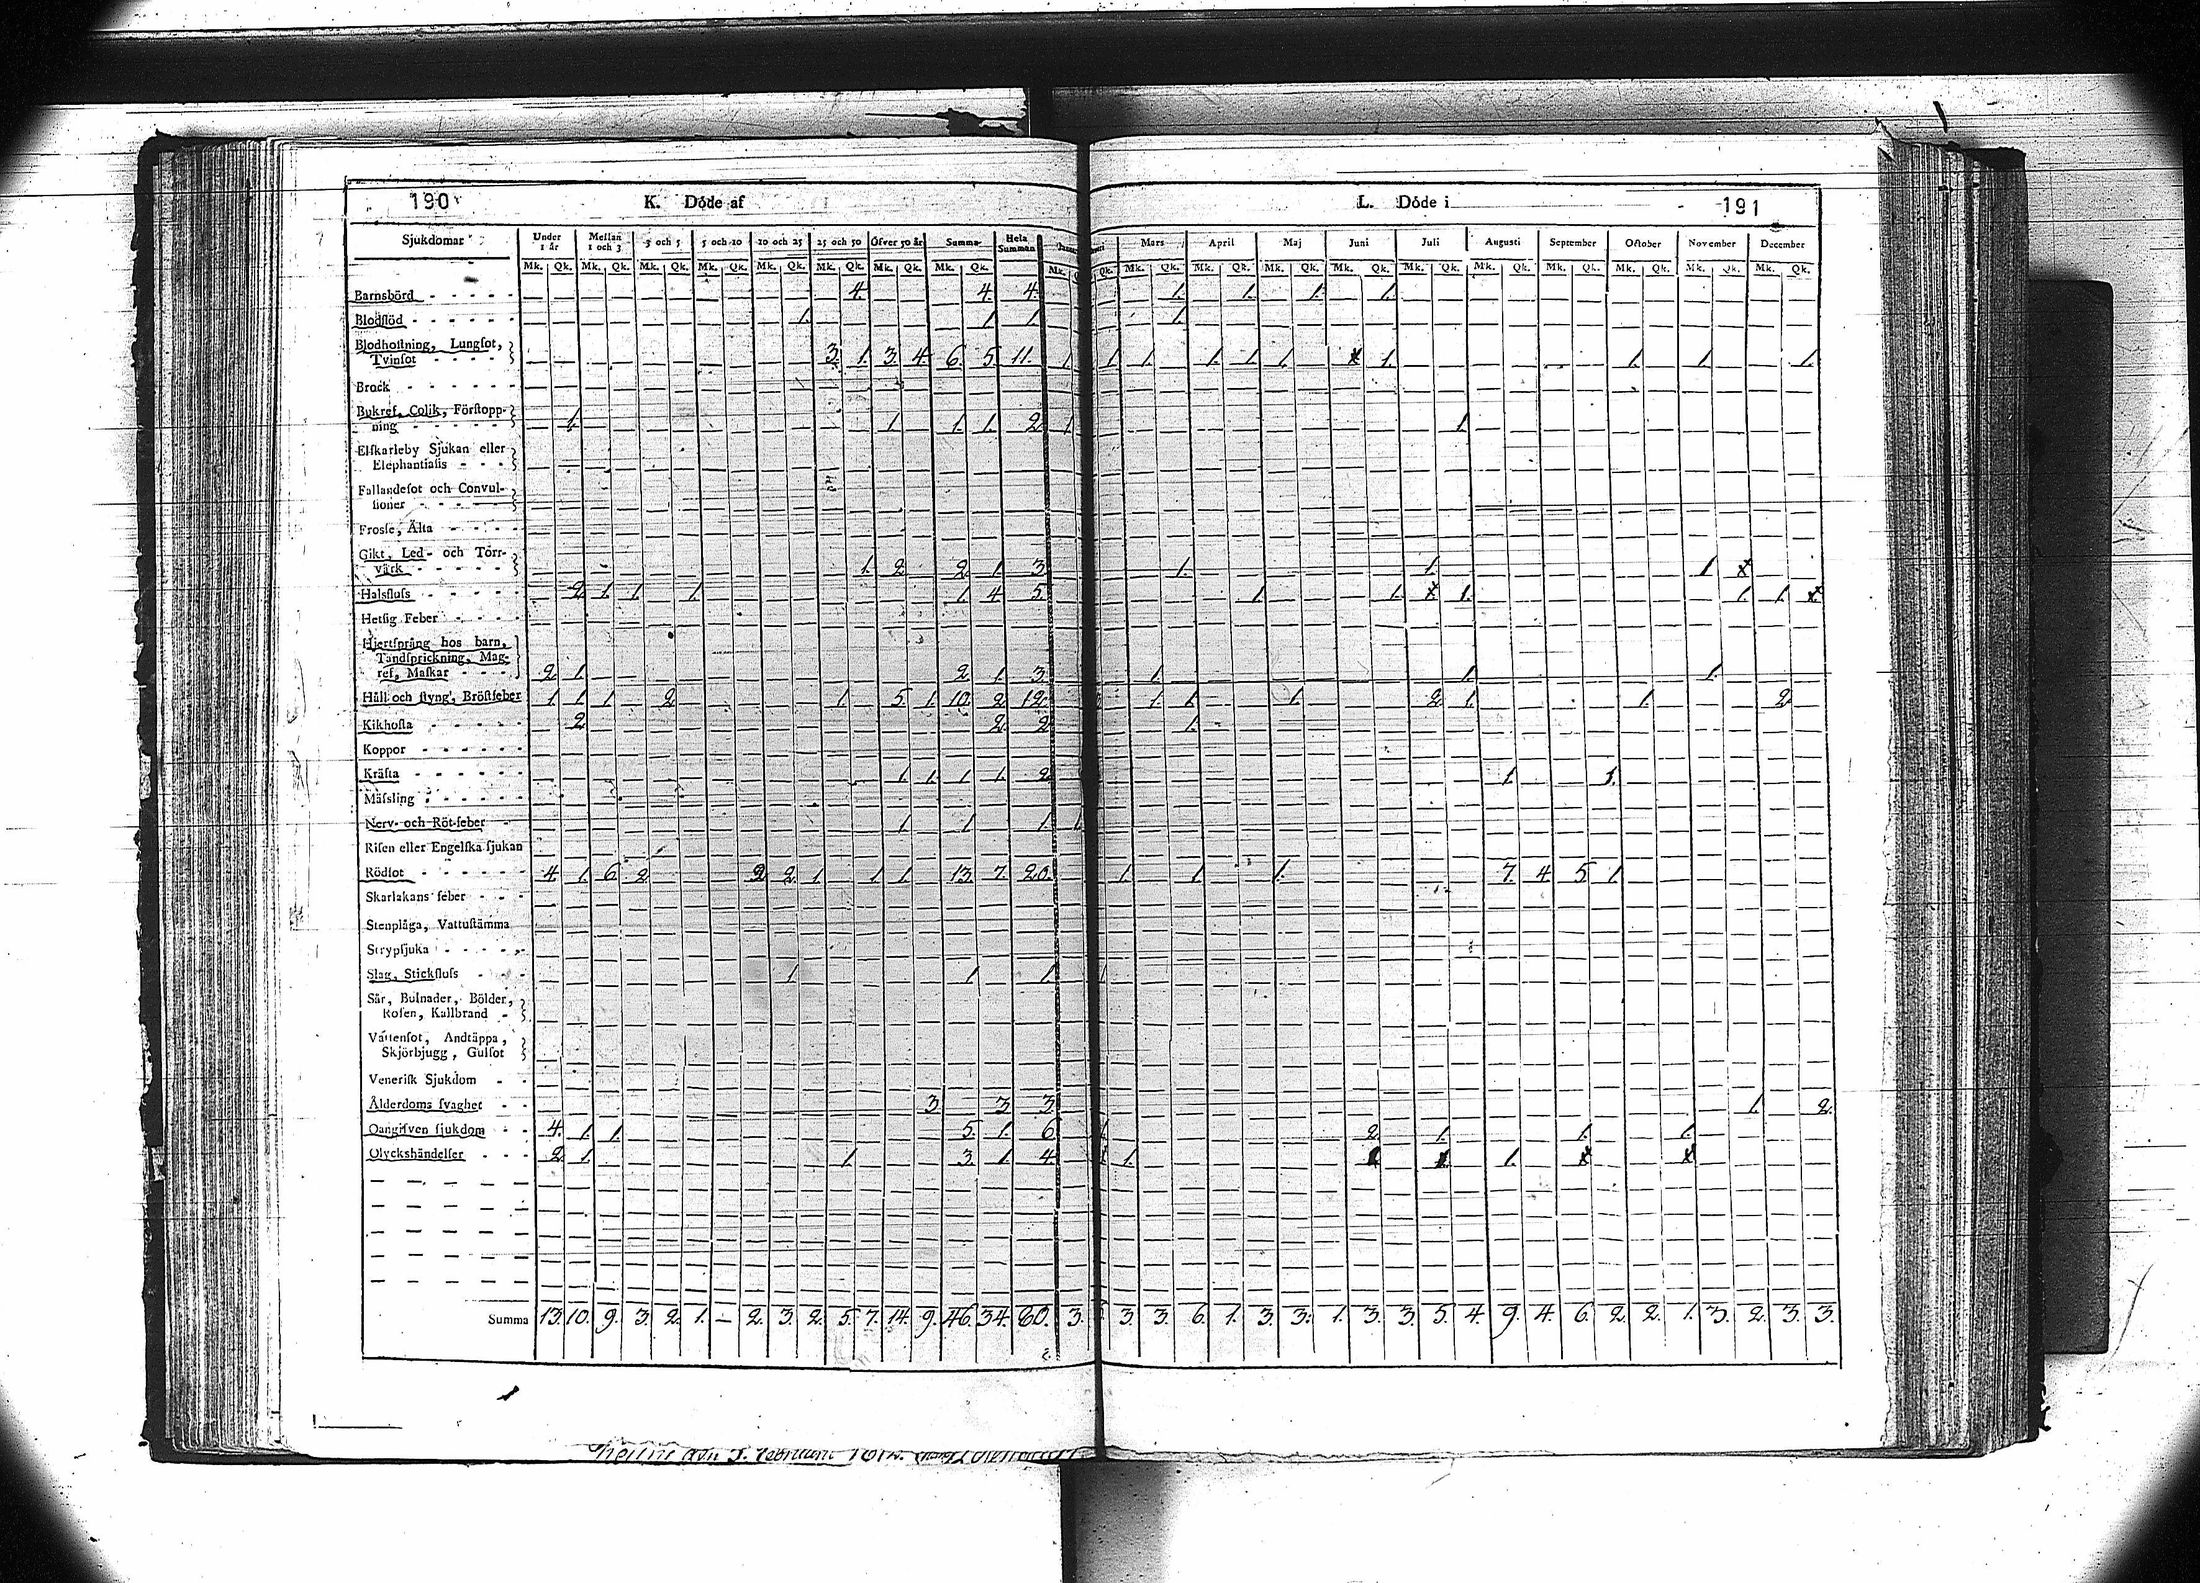 190 K. Döde af
Sjukdomar Under 1 år Mellan 1 och 3 3 och 5 5 och 10 10 och 25 25 och 50 Öfver 50 år Summa Hela Summan
Mk. Qk. Mk. Qk. Mk. Qk. Mk. Qk. Mk. Qk. Mk. Qk. Mk. Qk. Mk. Qk.
Barnsbörd 4. 4. 4.
Blodflöd 1. 1. 1.
Blodhoſtning, Lungſot,
Tvinſot 3. 1. 3. 4. 6. 5. 11.
Brock
Bukref, Colik, Förſtopp-
ning 1. 1. 1. 1. 2.
Elfkarleby Sjukan eller
Elephantiaſis
Fallandeſot och Convul-
ſioner
Frosſe, Älta
Gikt, Led- och Torr-
värk 1. 2. 2. 1. 3.
Halsfluſs 2. 1. 1. 1. 1. 4. 5.
Hetſig Feber
Hjertſprång hos barn,
Tandſprickning, Mag-
ref, Maſkar 2. 1. 2. 1. 3.
Håll och ſtyng, Bröſtfeber 1. 1. 1. 2. 1. 5. 1. 10. 2. 12.
Kikhoſta 2. 2. 2.
Koppor
Kräfta 1. 1. 1. 1. 2.
Mäſsling
Nerv- och Röt-feber 1. 1. 1.
Riſen eller Engelſka ſjukan
Rödſot 4. 1. 6. 2. 2. 2. 1. 1. 1. 13. 7. 20.
Skarlakans feber
Stenplåga, Vattuſtämma
Strypſjuka
Slag, Stickfluſs 1. 1. 1.
Sår, Bulnader, Bölder,
Roſen, Kallbrand
Vattenſot, Andtäppa,
Skjörbjugg, Gulſot
Veneriſk Sjukdom
Ålderdoms ſvaghet 3. 3. 3.
Oangifven ſjukdom 4. 1. 1. 5. 1. 6.
Olyckshändelſer 2. 1. 1. 3. 1. 4.
Summa 13. 10. 9. 3. 2. 1. — 2. 3. 2. 5. 7. 14. 9. 46. 34. 80.
L. Döde i 191
Mars April Maj Juni Juli Auguſti September October November December
Mk. Qk. Mk. Qk. Mk. Qk. Mk. Qk. Mk. Qk. Mk. Qk. Mk. Qk. Mk. Qk. Mk. Qk. Mk. Qk.
1. 1. 1. 1.
1.
1. 1. 1. 1. 1. 1. 1. 1. 1. 1.
1. 1.
1. 1. 1.
1. 1. 1. 1. 1.
1. 1. 1.
1. 1. 1. 2. 1. 1. 2.
1.
1. 1.
1. 1. 1. 7. 4. 5. 1.
1. 2.
2. 1. 1. 1.
1. 1.
3. 3. 3. 6. 1. 3. 3. 1. 3. 3. 5. 4. 9. 4. 6. 2. 2. 1. 3. 2. 3. 3.